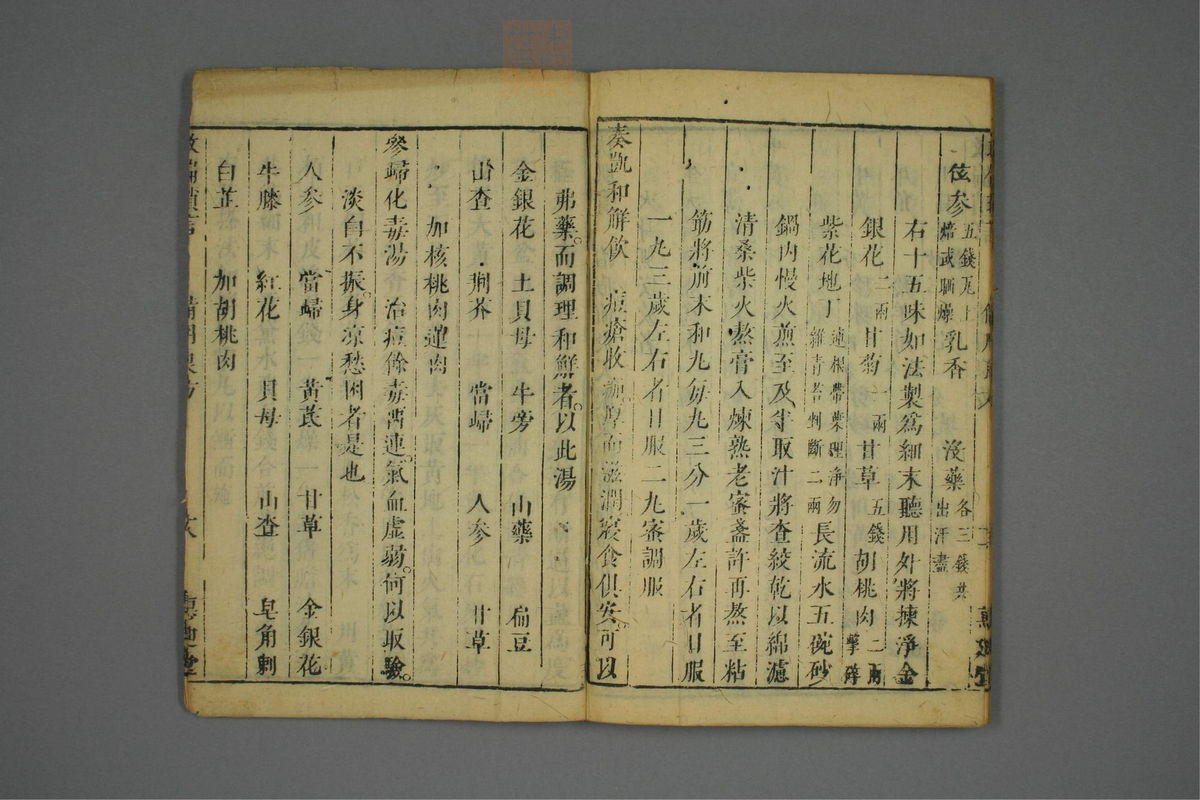 伭參五錢瓦上焙或晒燥乳香 沒藥各三錢共出汗盡
右十五味如法製爲細末聽用外將揀淨金
銀花二兩甘菊一兩甘草五錢胡桃肉二兩擊碎
紫花地丁連根帶葉理淨勿雜青苔剉斷二兩長流水五碗砂
鍋內慢火煎至及半取汁將查絞乾以綿濾
清桑柴火熬膏入煉熟老蜜盞許再熬至粘
筯將前末和丸每丸三分一歲左右者日服
一丸三歲左右者日服二丸蜜調服
奏凱和解飲 痘瘡收靨厚而滋潤寢食俱安可以
弗藥而調理和解者以此湯
金銀花 土貝母 牛旁 山藥 扁豆
山查 荆芥 當歸 人參 甘草
加核桃肉蓮肉
參歸化毒湯 治痘餘毒畱連氣血虛弱何以取驗
淡白不振身凉愁困者是也
人參 當歸 黃芪 甘草 金銀花
牛膝 紅花 貝母 山查 皂角刺
白芷 加胡桃肉